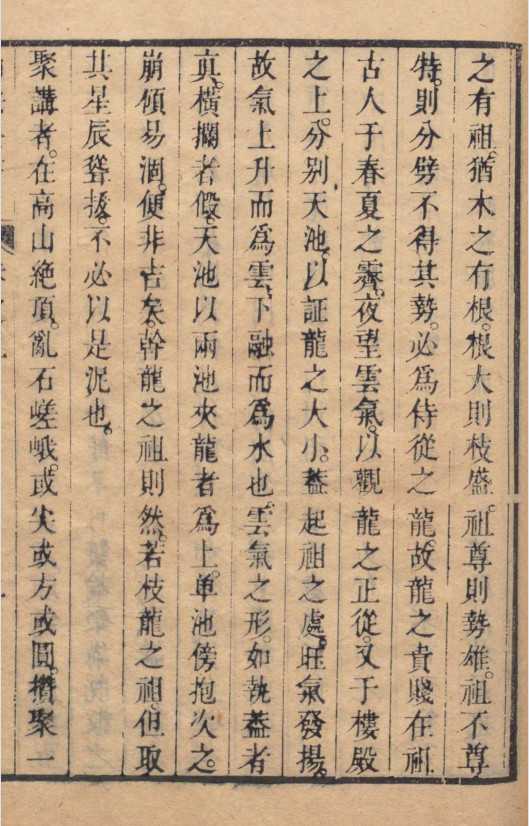 之有祖。猶木之有根。根大則枝盛。祖尊則勢雄。祖不尊
特。則分劈不得其勢。必爲侍從之龍。故龍之貴賤在祖。
古人于春夏之霽。夜望雲氣。以觀龍之正從。又于樓殿
之上。分别天池。以証龍之大小。葢起祖之處。旺氣發揚。
故氣上升而爲雲。下融而爲水也。雲氣之形。如執葢者
真。橫攔者假。天池以兩池夾龍者爲上。单池傍抱次之。
崩傾易涸。便非吉矣。幹龍之祖則然。若枝龍之祖。但取
其星辰聳拔。不必以是泥也。
聚講者。在高山絶頂。亂石嵯峨。或尖或方或圓。攢聚一